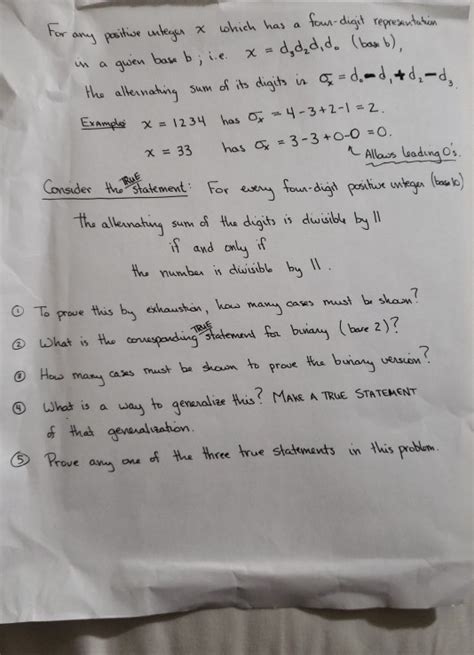 For any positive integer x which has a four-digit representation
in a given base b ; i.e. x = d₃d₂d₁d₀ (base b),
the alternating sum of its digits is σₓ = d₀ - d₁ + d₂ - d₃.
Example: x = 1234 has σₓ = 4-3+2-1 = 2.
x = 33 has σₓ = 3-3+0-0 = 0.
↑ Allows leading 0's.
Consider the TRUE statement: For every four-digit positive integer (base 10)
The alternating sum of the digits is divisible by 11
if and only if
the number is divisible by 11.
① To prove this by exhaustion, how many cases must be shown?
② What is the corresponding TRUE statement for binary (base 2)?
③ How many cases must be shown to prove the binary version?
④ What is a way to generalize this? MAKE A TRUE STATEMENT
of that generalization.
⑤ Prove any one of the three true statements in this problem.